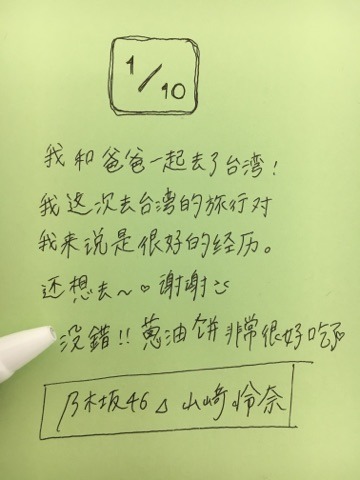 1/10
我和爸爸一起去了台湾!
我这次去台湾的旅行对
我来说是很好的经历。
还想去~♡谢谢☺
没錯!!蔥油饼非常很好吃
乃木坂46△山崎怜奈